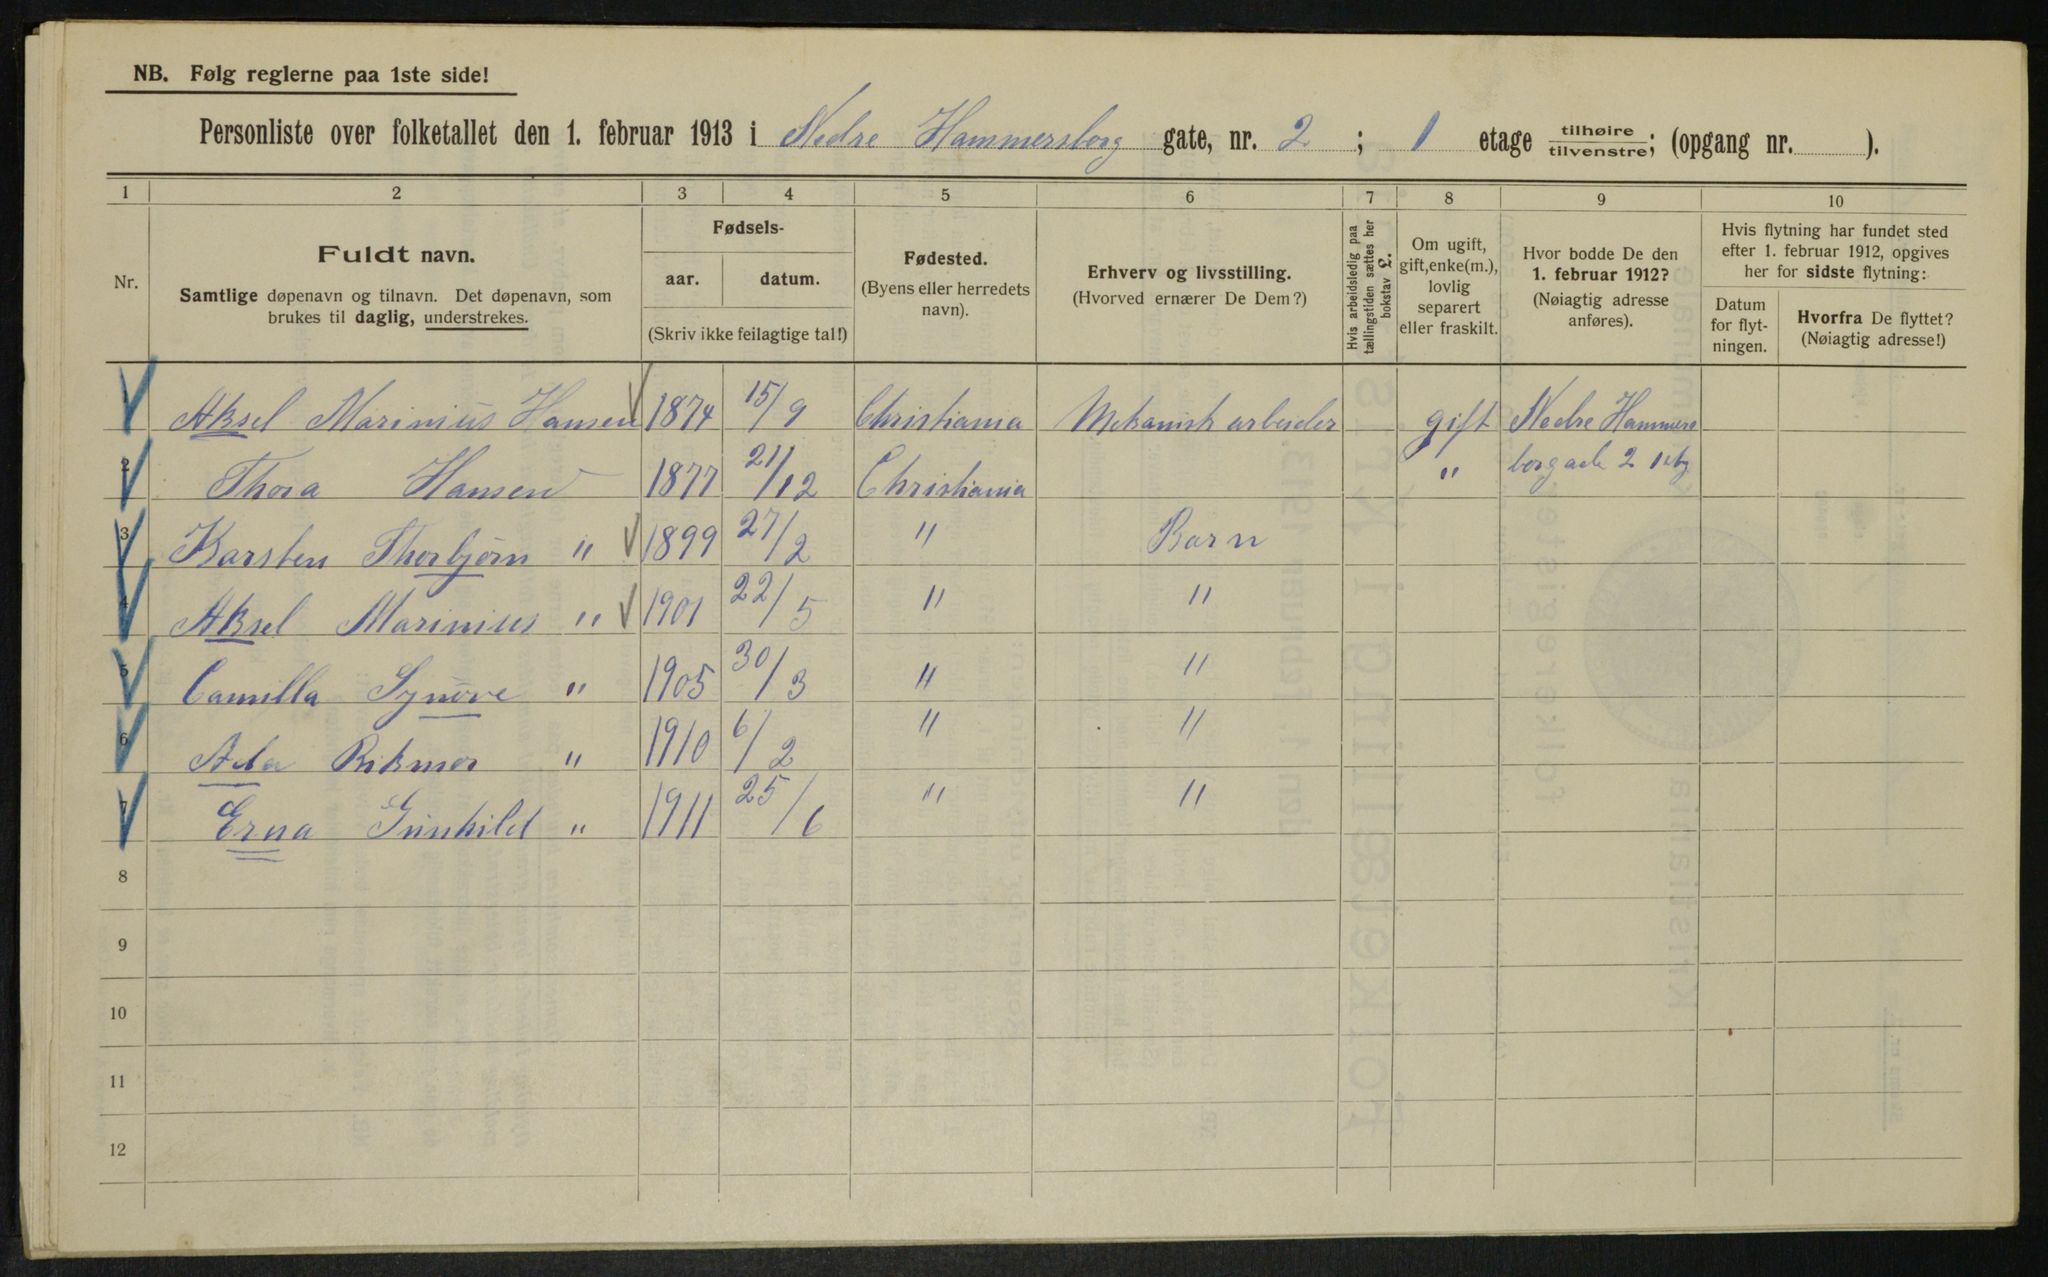 NB. Følg reglerne paa 1ste side!
Personliste over folketallet den 1. februar 1913 i Nedre Hammersborg gate, nr. 2 ; 1 etage tilhøire tilvenstre; (opgang nr. ).
1 2 3 4 5 6 7 8 9 10
Nr.
Fuldt navn.
Samtlige døpenavn og tilnavn. Det døpenavn, som
brukes til daglig, understrekes.
Fødsels-
aar. datum.
(Skriv ikke feilagtige tal!)
Fødested.
(Byens eller herredets
navn).
Erhverv og livsstilling.
(Hvorved ernærer De Dem?)
Hvis arbeidsledig paa
tællingstiden sættes her
bokstav L.
Om ugift,
gift, enke(m.),
lovlig
separert
eller fraskilt.
Hvor bodde De den
1. februar 1912?
(Nøiagtig adresse
anføres).
Hvis flytning har fundet sted
efter 1. februar 1912, opgives
her for sidste flytning:
Datum
for flyt-
ningen.
Hvorfra De flyttet?
(Nøiagtig adresse!)
1 Aksel Marinius Hansen 1874 15/9 Christiania Mekanisk arbeider gift Nedre Hammers
2 Thora Hansen 1877 21/12 Christiania " 2
3 Karsten Thorbjørn " 1899 27/2 " Barn
4 Aksel Marinius " 1901 22/5 " "
5 Camilla Synøve " 1905 30/3 " "
6 " 1910 6/2 " "
7 Erna Gunhild " 1911 25/6 " "
8
9
10
11
12